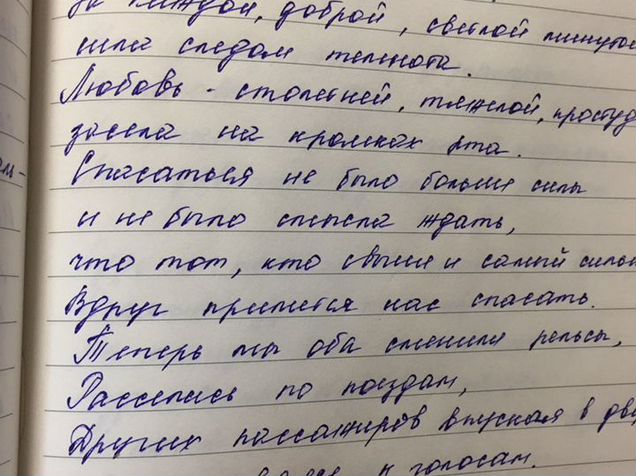 За каждой, доброй, светлой минутой
шла следом темнота.
Любовь - столетней, тяжелой, простуд
засела на кромках рта.
Спасаться не было больше силы
и не было смысла ждать,
что тот, кто свыше и самый силь
Вдруг примется нас спасать.
Теперь мы оба сменили рельсы,
Расселись по поездам,
Других пассажиров впуская в дв
к голосам.